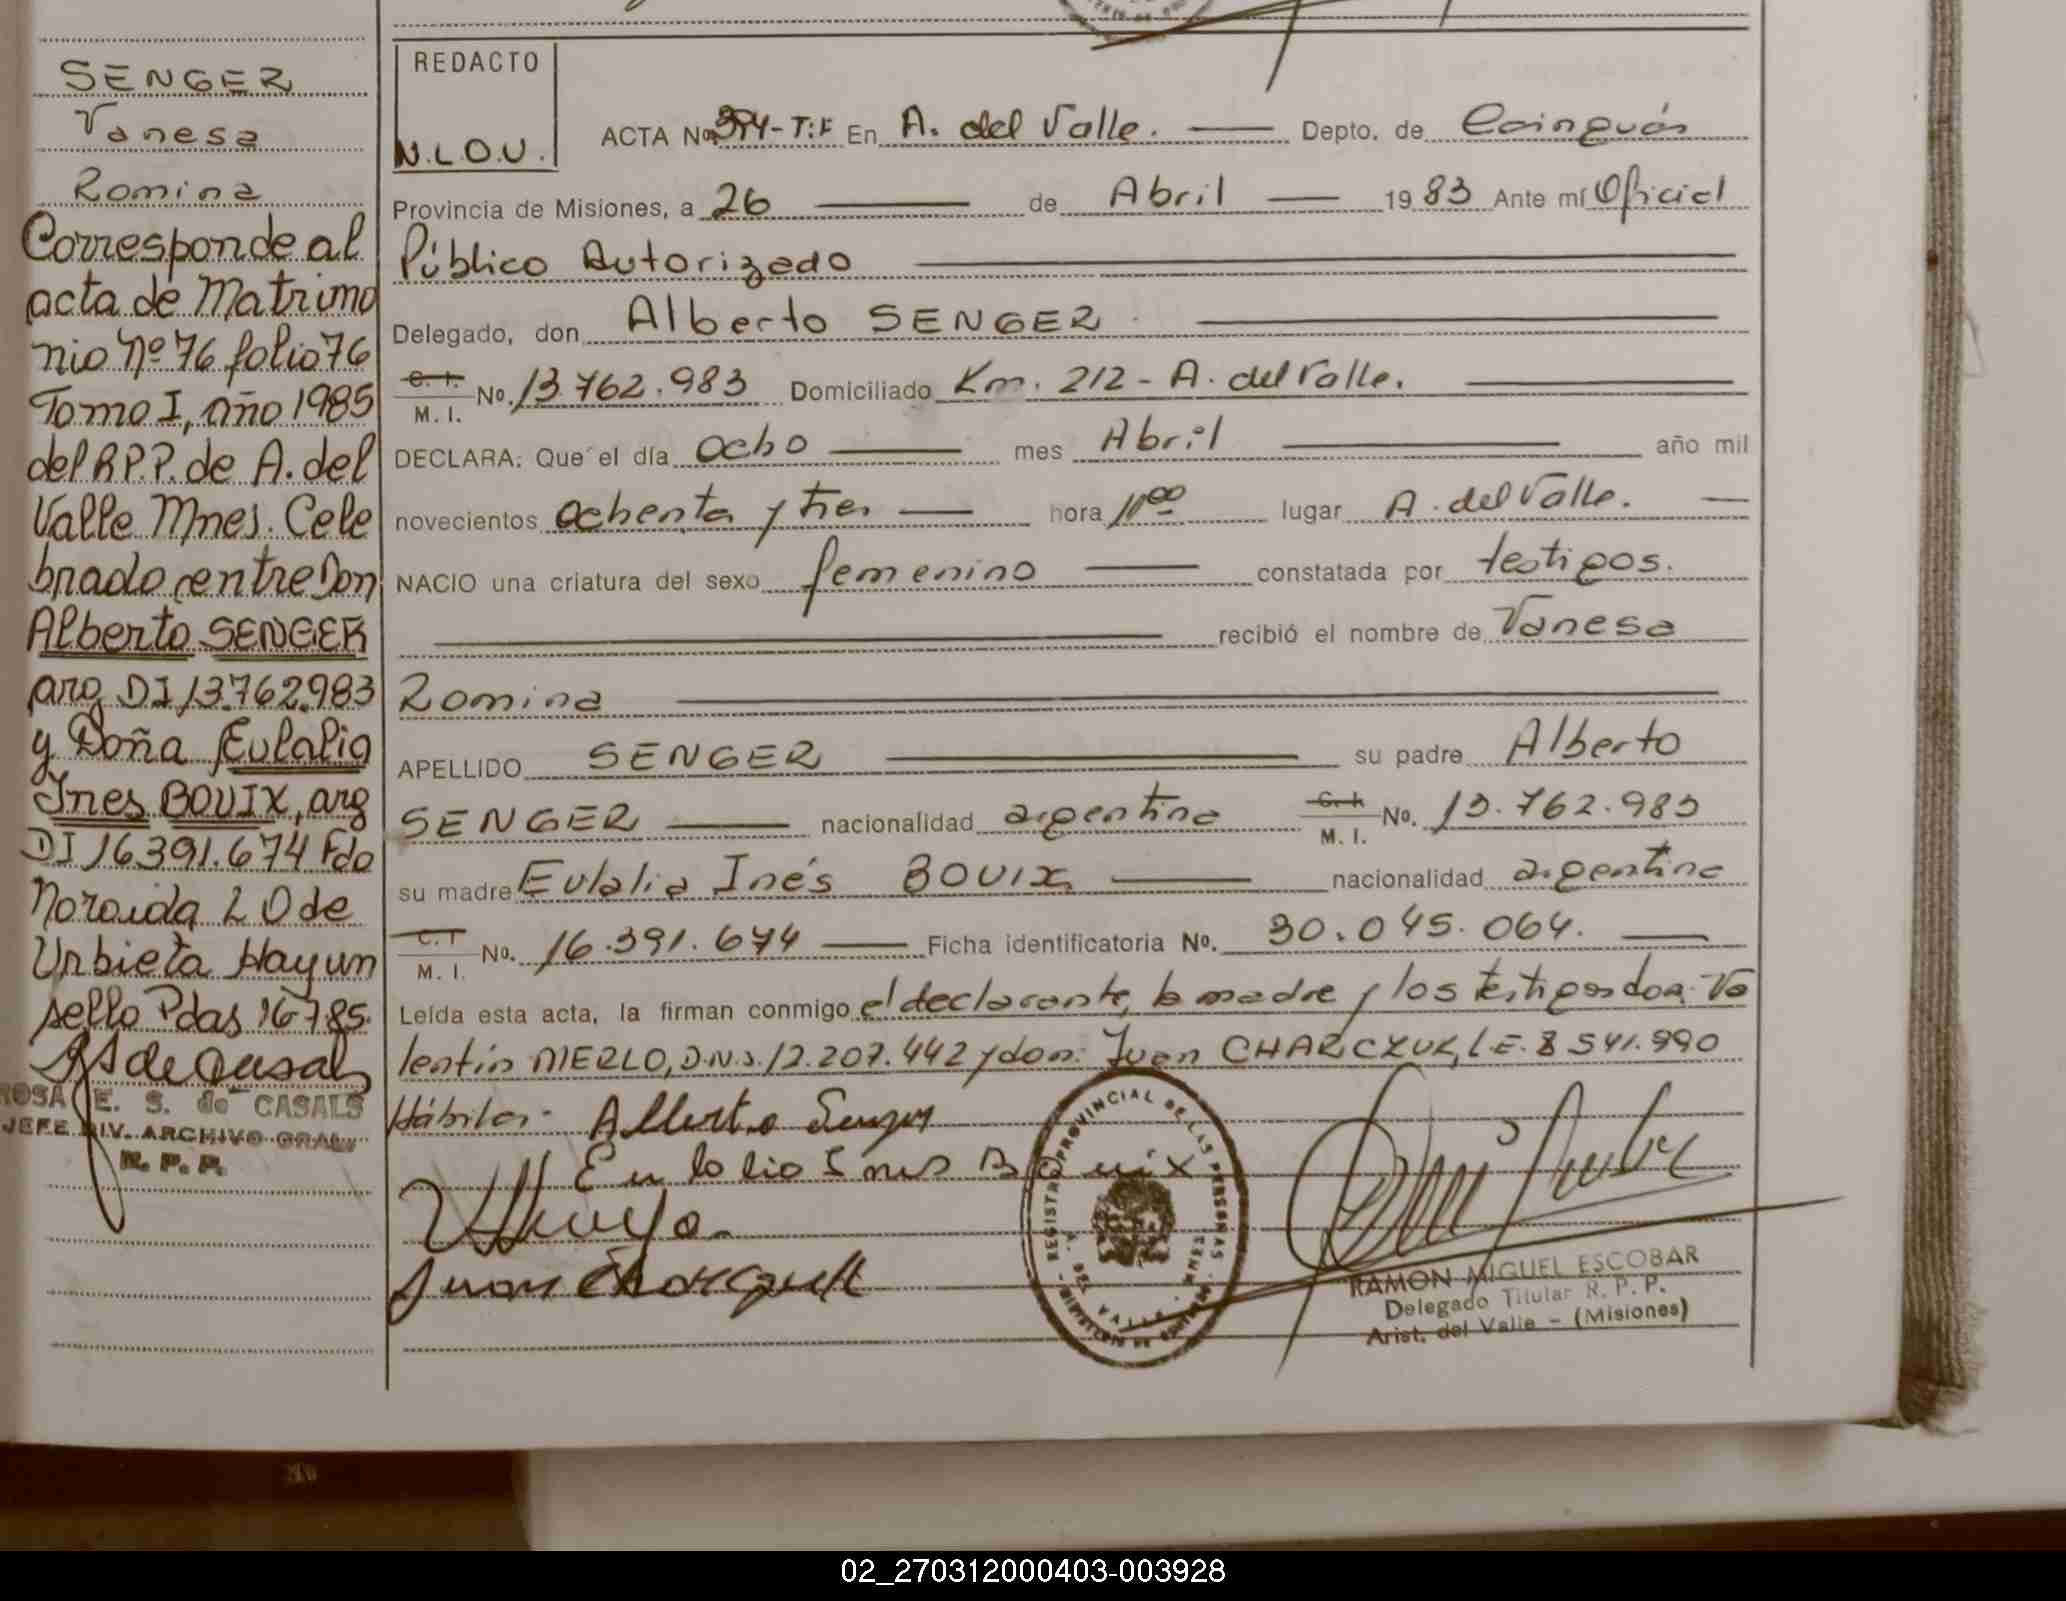 SENGER
Vanesa
Romina
Corresponde al
acta de Matrimo
nio Nº 76 folio 76
Tomo I, año 1985
del R.P.P. de A. del
Valle Mnes. Cele
brado entre Don
Alberto SENGER
arg DI 13.762.983
y Doña Eulalia
Ines BOUIX, arg
DI 16391.674 Fdo
Noraida L O de
Urbieta Hay un
sello Pdas 16785.
ROSA E. S. de CASALS
JEFE DIV. ARCHIVO GRAL.
R. P. P.
REDACTO
N.L.O.U.
ACTA No. T:F En A. del Valle. Depto. de Cainguás
Provincia de Misiones, a 26 de Abril 1983 Ante mí Oficial
Público Autorizado
Delegado, don Alberto SENGER
C. I.
M. I. No. 13.762.983 Domiciliado Km. 212 - A. del Valle.
DECLARA: Que el día ocho mes Abril año mil
novecientos ochenta y tres hora 11 00 lugar A. del Valle.
NACIO una criatura del sexo femenino constatada por testigos.
recibió el nombre de Vanesa
Romina
APELLIDO SENGER su padre Alberto
SENGER nacionalidad argentina C. I.
M. I. No. 13.762.983
su madre Eulalia Inés BOUIX nacionalidad argentina
C. I.
M. I. No. 16.391.674 Ficha identificatoria No. 30.045.064.
Leída esta acta, la firman conmigo el declarante, la madre y los testigos don Va
lentín MERLO, D.N.I. 12.207.442 y don: Juan CHARCZUK, L.E. 8 541.990
Hábiles.
Alberto Senger
Eulalio Ines Bouix
REGISTRO PROVINCIAL DE LAS PERSONAS
RAMON MIGUEL ESCOBAR
Delegado Titular R. P. P.
Arist. del Valle - (Misiones)
02_270312000403-003928